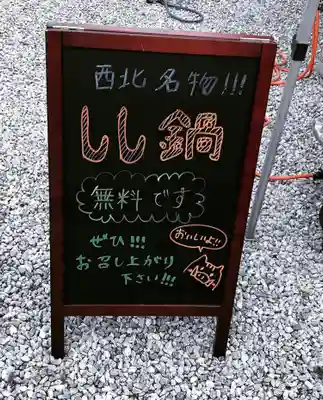 西北名物!!!
しし鍋
無料です
ぜひ!!!
お召し上がり
下さい!!!
おいしいよ!!